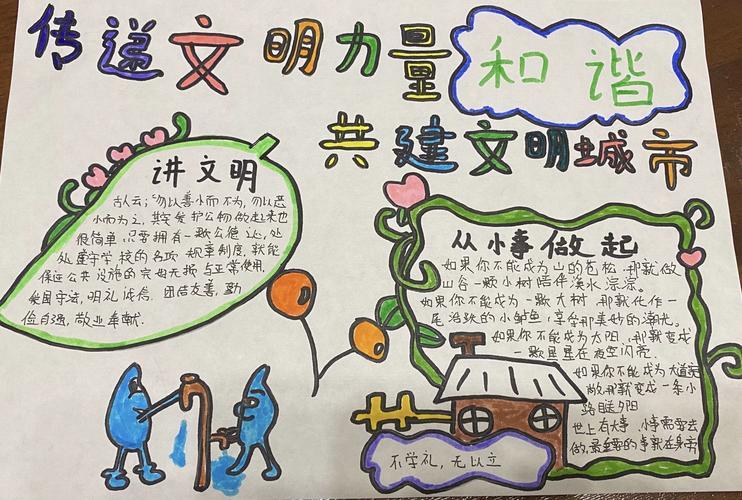 传递文明力量
和谐
共建文明城市
讲文明
古人云:"勿以善小而不为,勿以恶
小而为之,其实爱护公物做起来也
很简单,只要拥有一颗公德心,处
处遵守学校的各项规章制度,就能
保证公共设施的完好无损与正常使用,
爱国守法,明礼诚信,团结友善,勤
俭自强,敬业奉献.
从小事做起
如果你不能成为山的苍松,那就做
山谷一颗小树陪伴溪水淙淙。
如果你不能成为一颗大树,那就化作一
尾活跃的小鲈鱼,享受那美妙的湖光。
如果你不能成为太阳,那就变成
一颗星星在夜空闪亮.
如果你不能成为大道
做那就变成一条小
路目送夕阳
世上有大事,小事需要去
做,最重要的事就在身旁
不学礼,无以立